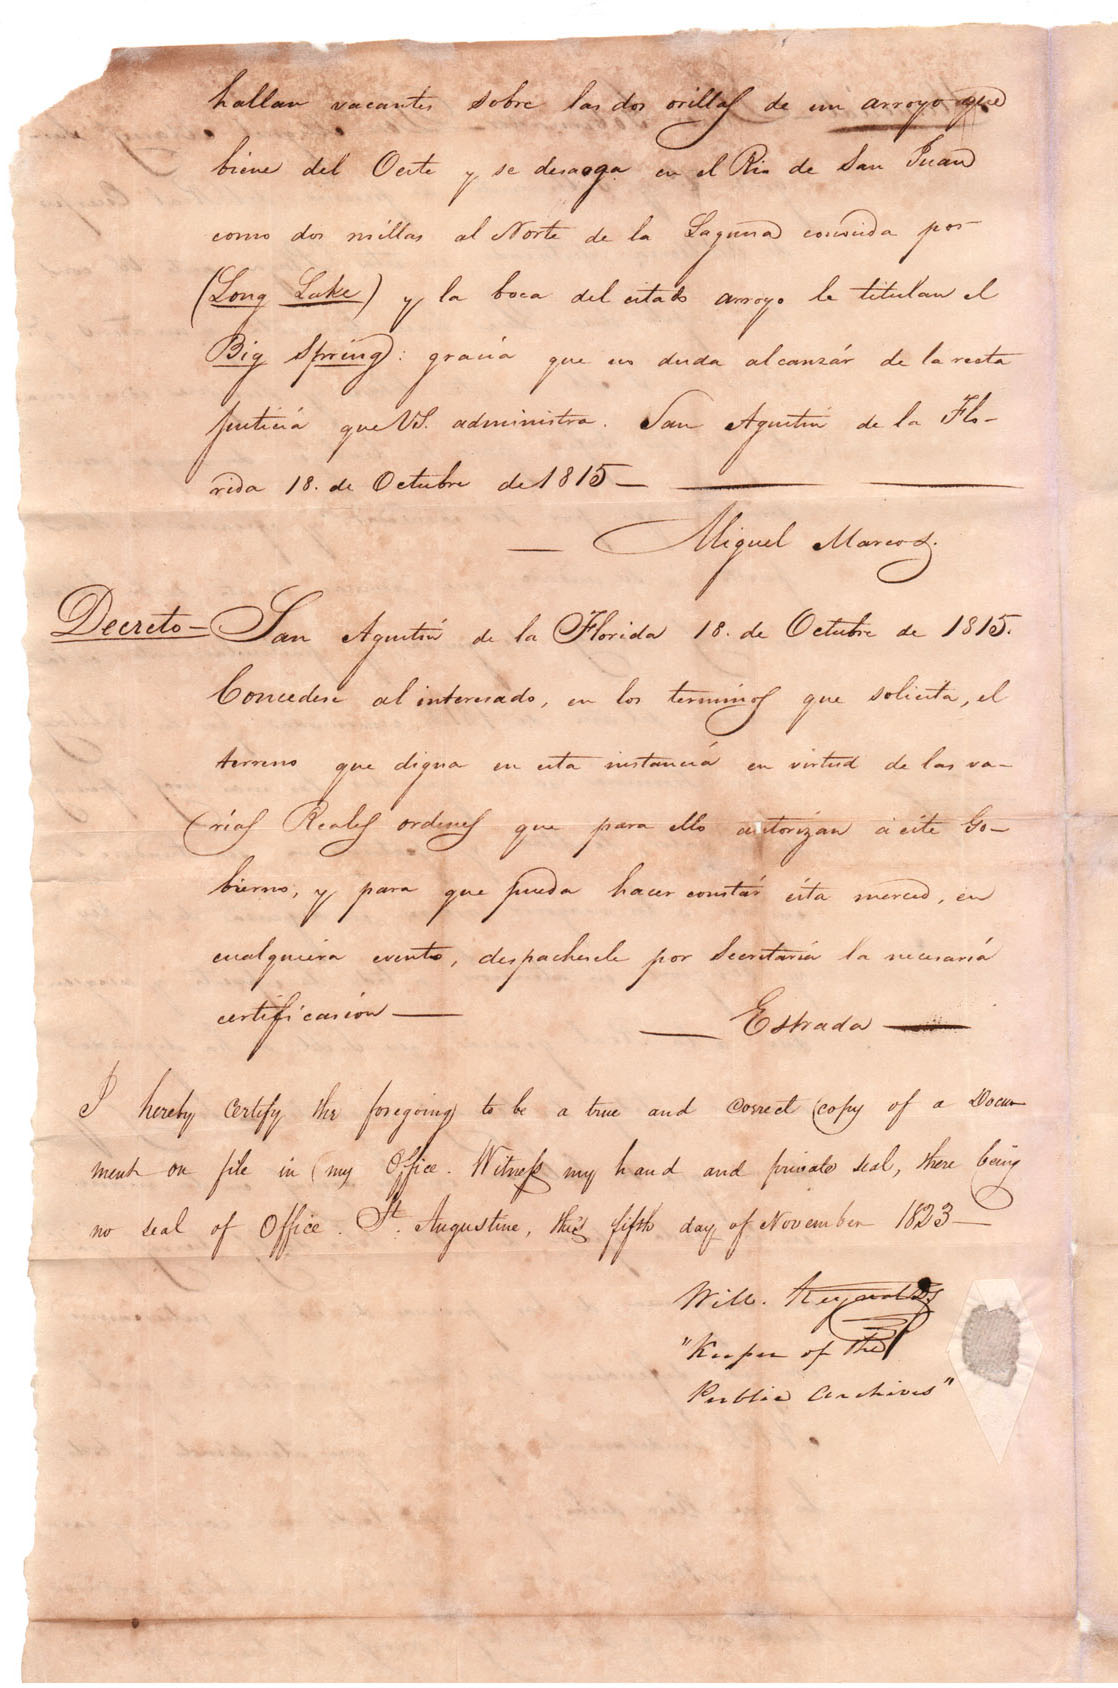 hallan vacantes sobre las dos orillas de un arroyo que
biene del Oeste y se desaoga en el Rio de San Juan
como dos millas al Norte de la Laguna conosida por
(Long Lake) y la boca del citado arroyo le titulan el
Big Spring: gracia que no duda alcanzár de la recta
justicia que VS. administra. San Agustin de la Flo-
rida 18. de Octubre de 1815—
— Miguel Marcos.
Decreto— San Agustin de la Florida 18. de Octubre de 1815.
Concedese al interesado, en los terminos que solicita, el
terreno que digna en esta instancia en virtud de las va-
rias Reales ordenes que para ello autorizan á este Go-
bierno, y para que pueda hacer constár ésta merced, en
cualquiera evento, despachesele por Secretaria la necesaria
certificasion — — Estrada —
I hereby Certify the foregoing to be a true and Correct Copy of a Docu-
ment on file in my Office. Witness my hand and private seal, there being
no seal of Office. St. Augustine, this fifth day of November 1823—
Will. Reynolds
"Keeper of the
Public Archives"